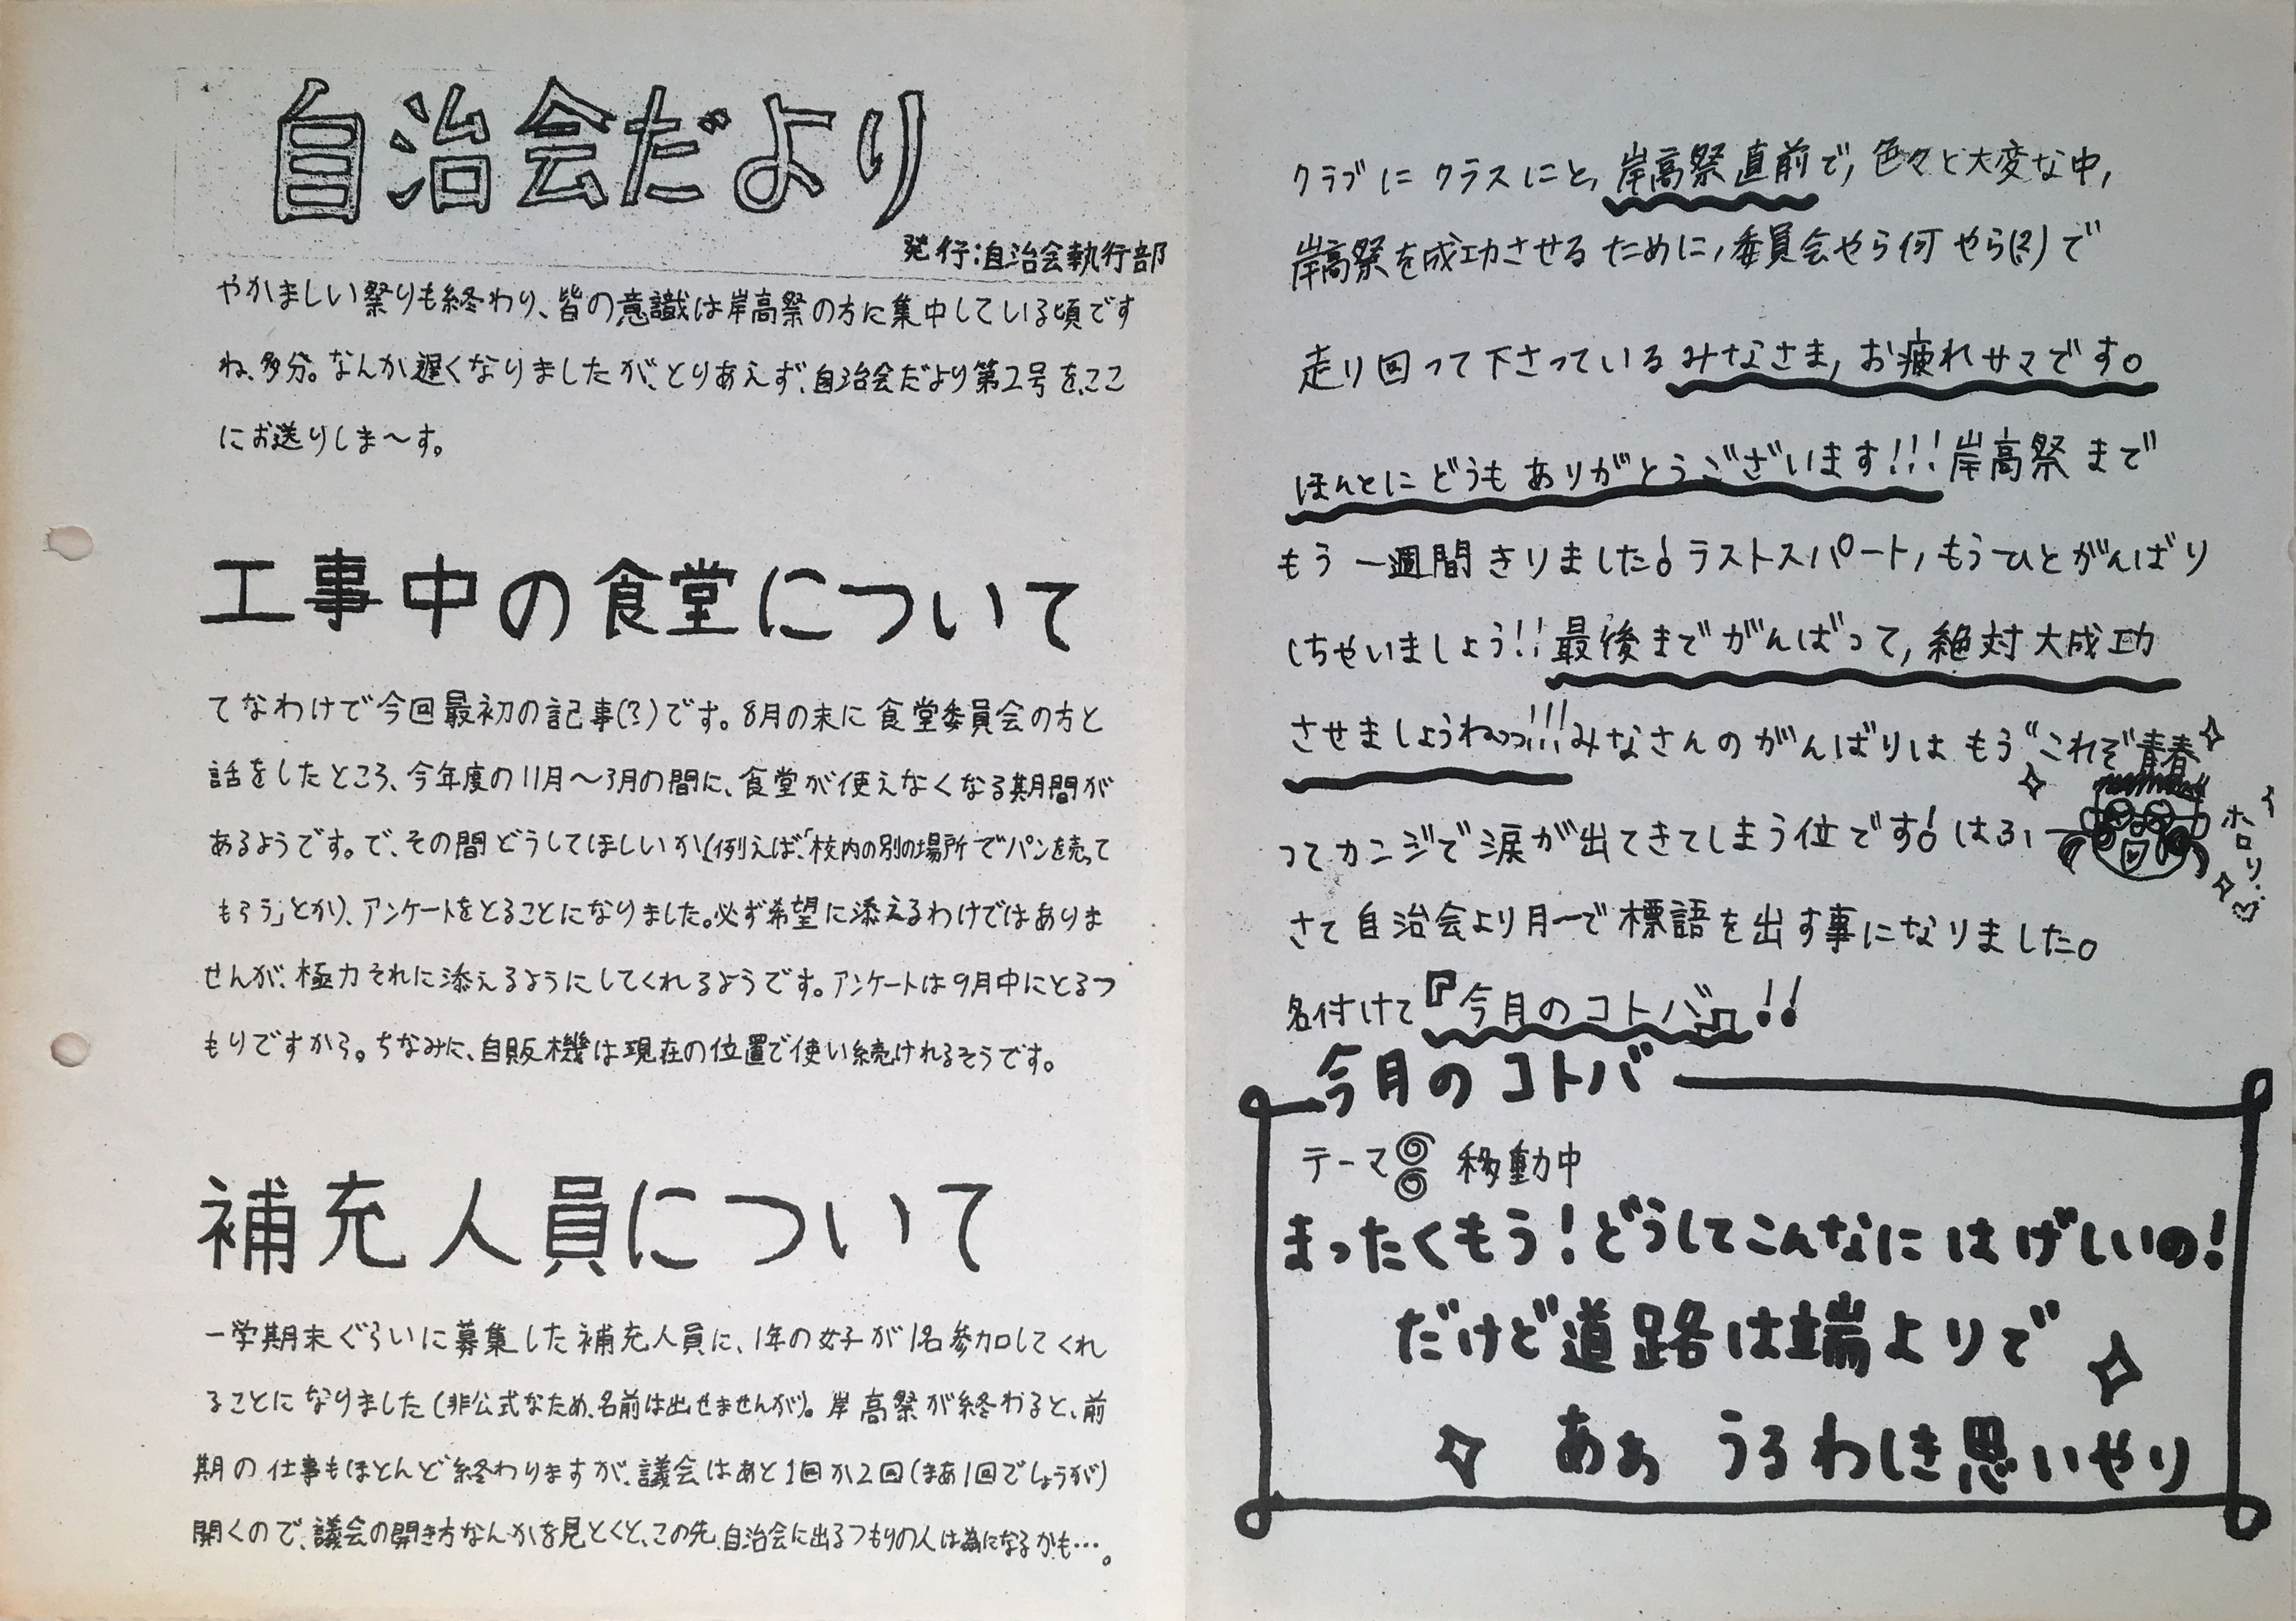 自治会だより
発行:自治会執行部
やかましい祭りも終わり、皆の意識は岸高祭の方に集中している頃です
ね、多分。なんか遅くなりましたが、とりあえず、自治会だより第2号を、ここ
にお送りしま〜す。
工事中の食堂について
てなわけで今回最初の記事(?)です。8月の末に食堂委員会の方と
話をしたところ、今年度の11月〜3月の間に、食堂が使えなくなる期間が
あるようです。で、その間どうしてほしいか(例えば、「校内の別の場所でパンを売って
もらう」とか)、アンケートをとることになりました。必ず希望に添えるわけではありま
せんが、極力それに添えるようにしてくれるようです。アンケートは9月中にとるつ
もりですから。ちなみに、自販機は現在の位置で使い続けれるそうです。
補充人員について
一学期末ぐらいに募集した補充人員に、1年の女子が1名参加してくれ
ることになりました(非公式なため、名前は出せませんが)。岸高祭が終わると、前
期の仕事もほとんど終わりますが、議会はあと1回か2回(まあ1回でしょうが)
開くので、議会の開き方なんかを見とくと、この先、自治会に出るつもりの人は為になるかも…。
クラブにクラスにと,岸高祭直前で,色々と大変な中,
岸高祭を成功させるために,委員会やら何やら(?)で
走り回って下さっているみなさま,お疲れサマです。
ほんとにどうもありがとうございます!!!岸高祭まで
もう一週間きりました!ラストスパート,もうひとがんばり
しちゃいましょう!!最後までがんばって,絶対大成功
させましょうねっっ!!!みなさんのがんばりはもう“これぞ青春
ってカンジで涙が出てきてしまう位です!はふー
ホロリ…
さて自治会より月一で標語を出す事になりました。
名付けて『今月のコトバ』!!
今月のコトバ
テーマ 移動中
まったくもう!どうしてこんなにはげしいの!
だけど道路は端よりで
あぁ うるわしき思いやり